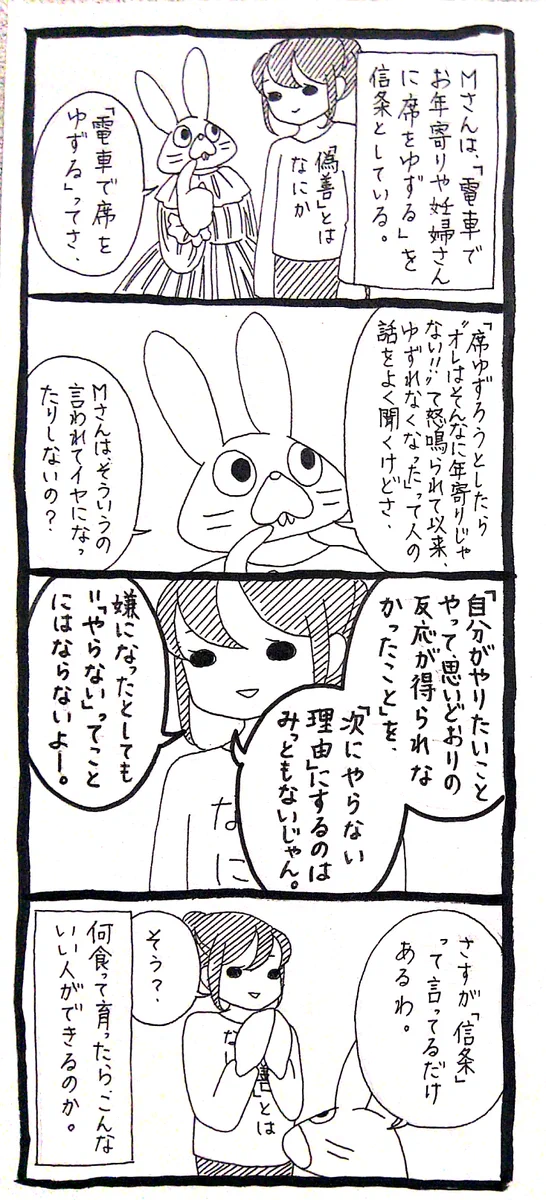 Mさんは、「電車で
お年寄りや妊婦さん
に席をゆずる」を
信条としている。
「偽善」とは
なにか
「電車で席を
ゆずる」ってさ、
「席ゆずろうとしたら
“オレはそんなに年寄りじゃ
ない!!”て怒鳴られて以来、
ゆずれなくなった」って人の
話をよく聞くけどさ、
Mさんは、そういうの
言われてイヤになっ
たりしないの？
「自分がやりたいこと
やって、思いどおりの
反応が得られな
かったこと」を、
「次にやらない
理由」にするのは
みっともないじゃん。
嫌になったとしても
「やらない」ってこと
にはならないよー。
な
に
さすが「信条」
って言ってるだけ
あるわ。
そう？
な
善」とは
何食って育ったら、こんな
いい人ができるのか。